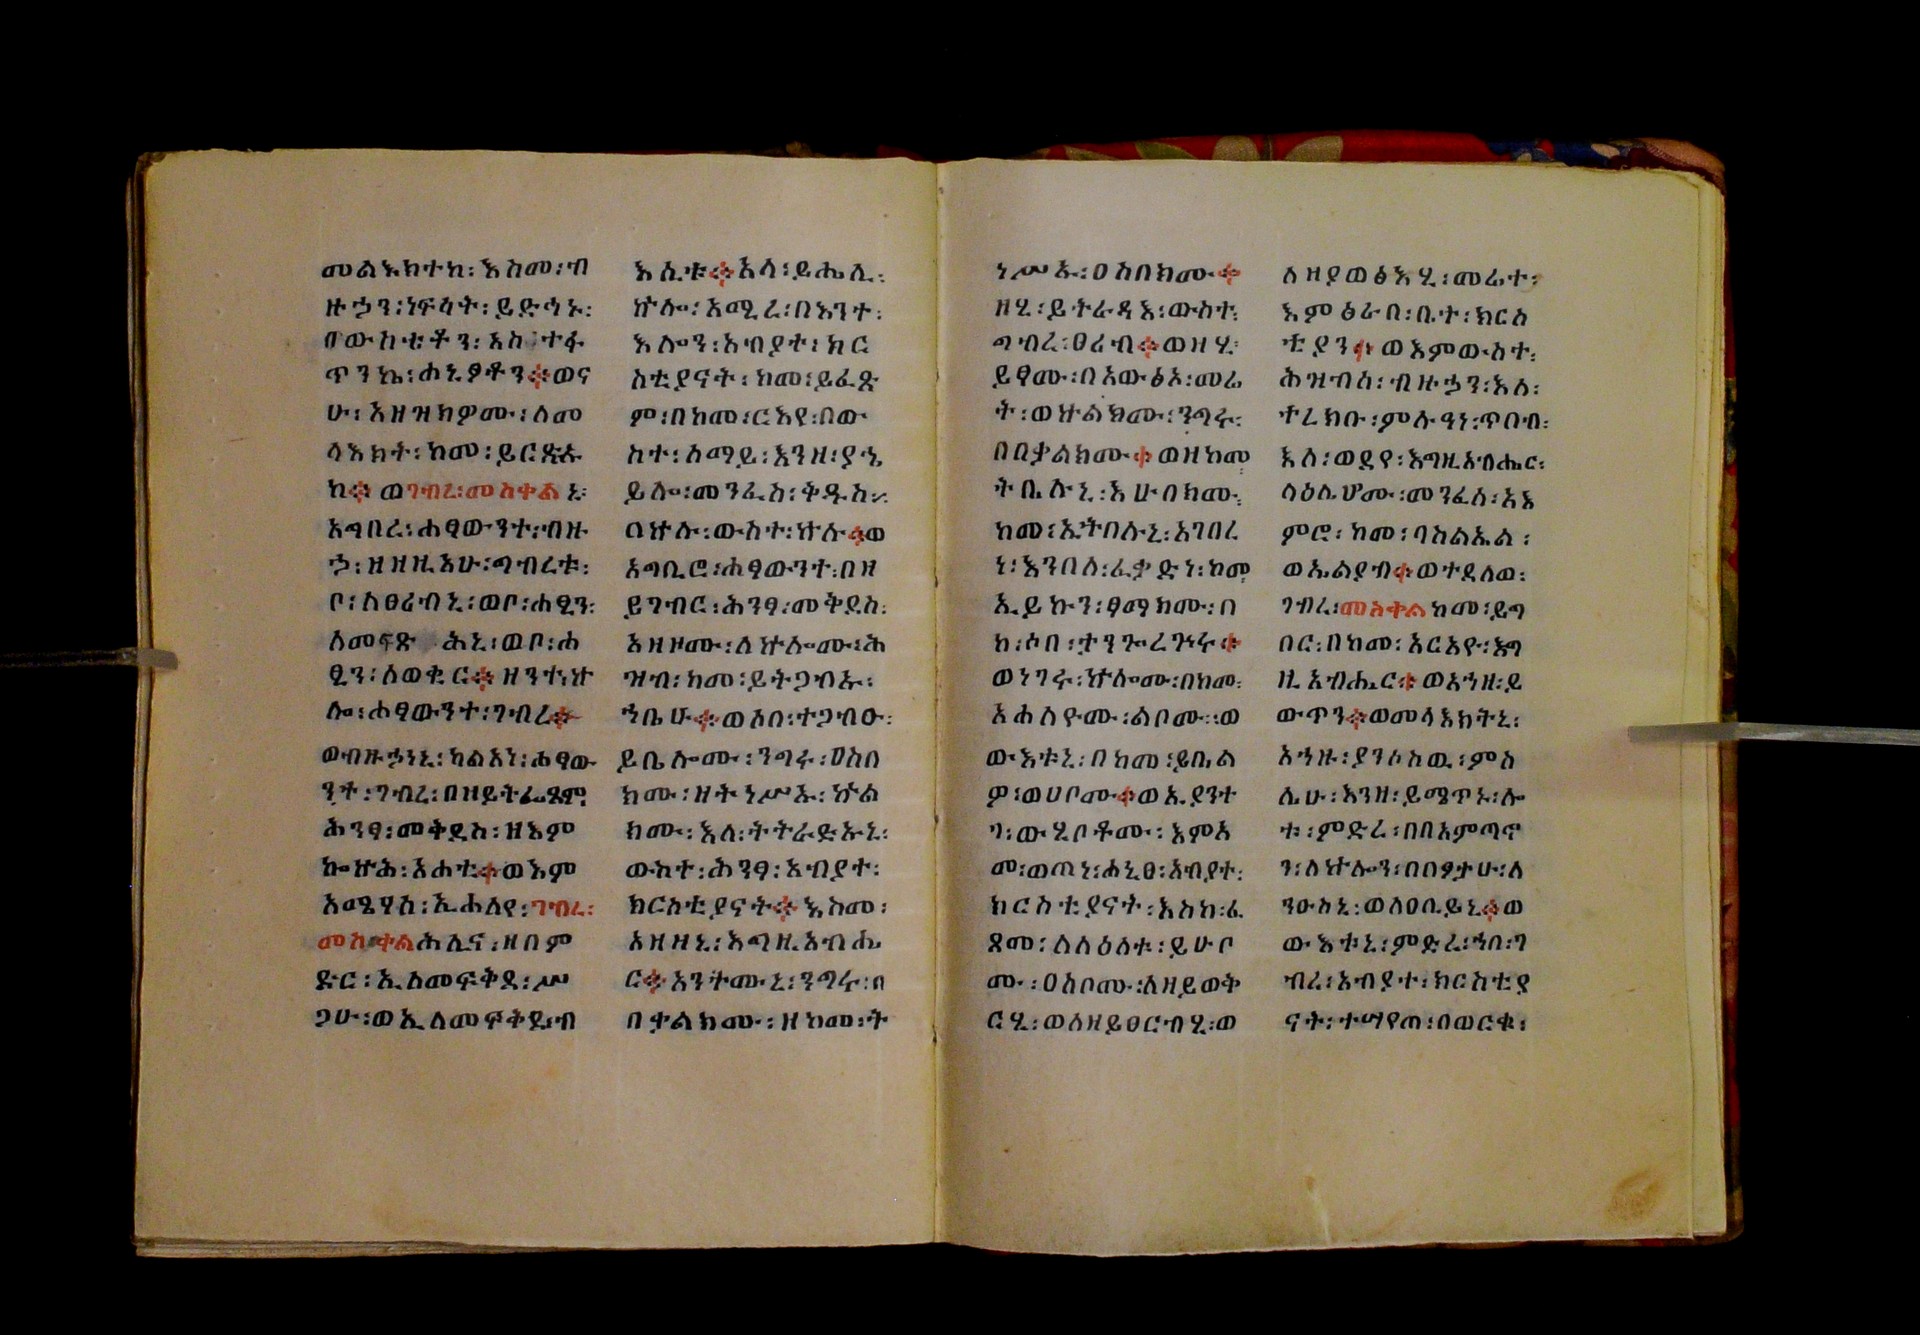 መልእክተከ፡ እስመ፡ ብ
ዙኃን፡ ነፍሳት፡ ይድኅኑ፡
በውስቴቶን፡ እስከ ተፋ
ጥንኬ፡ ሐኒፆቶን፨ ወና
ሁ፡ አዘዝክዎሙ፡ ለመ
ላእክት፡ ከመ፡ ይርድኡ
ከ፨ ወገብረ፡ መስቀል ኒ፡
አግበረ፡ ሐፃውንተ፡ ብዙ
ኃ፡ ዘዘዚአሁ፡ ግብረቱ፡
ቦ፡ ለፀራብኒ፡ ወቦ፡ ሐፂን፡
ለመፍጽ ሕኒ፡ ወቦ፡ ሐ
ፂን፡ ለወቂር፨ ዘንተኒ፡ ኵ
ሎ፡ ሐፃውንተ፡ ገብረ፨
ወብዙኃነኒ፡ ካልአነ፡ ሐፃው
ንተ፡ ገብረ፡ በዘይትፌጸም
ሕንፃ፡ መቅደስ፡ ዘእም
ኰኵሕ፡ አሐቲ፨ ወእም
አሜሃስ፡ ኢሐለየ፡ ገብረ፡
መስቀል ሕሊና፡ ዘበም
ድር፡ ኢለመፍቅደ፡ ሥ
ጋሁ፡ ወኢለመፍቅደ፡ ብ
እሲቱ፨ አላ፡ ይሔሊ፡
ኵሎ፡ አሚረ፡ በእንተ፡
እሎን፡ አብያተ፡ ክር
ስቲያናት፡ ከመ፡ ይፈጽ
ም፡ በከመ፡ ርእየ፡ በው
ስተ፡ ሰማይ፡ እንዘ፡ ያኄ
ይሎ፡ መንፈስ፡ ቅዱስ፡
በኵሉ፡ ውስተ፡ ኵሉ፨ ወ
አግቢሮ፡ ሐፃውንተ፡ በዘ
ይገብር፡ ሕንፃ፡ መቅደስ፡
አዘዞሙ፡ ለኵሎሙ፡ ሕ
ዝብ፡ ከመ፡ ይትጋብኡ፡
ኀቤሁ፨ ወአበ፡ ተጋብዑ፡
ይቤሎሙ፡ ንግሩ፡ ዐስበ
ክሙ፡ ዘትነሥኡ፡ ኵል
ክሙ፡ እለ፡ ትትራድኡኒ፡
ውስተ፡ ሕንፃ፡ አብያተ፡
ክርስቲያናት፨ እስመ፡
አዘዘኒ፡ እግዚአብሔ
ር፨ አንትሙኒ፡ ንግሩ፡ በ
በቃልክሙ፡ ዘከመ፡ ት
ነሥኡ፡ ዐስበክሙ፨
ዘሂ፡ ይትራዳእ፡ ውስተ፡
ግብረ፡ ፀራብ፨ ወዘሂ፡
ይፃሙ፡ በአውፅኦ፡ መሬ
ት፡ ወኵልክሙ፡ ንግሩ፡
በበቃልክሙ፨ ወዘከመ
ትቤሉኒ፡ እሁበክሙ፡
ከመ፡ ኢትበሉኒ፡ አገበረ
ነ፡ እንበለ፡ ፈቃድነ፡ ከመ
ኢይኩን፡ ፃማክሙ፡ በ
ከ፡ ሶበ፡ ታንጐረጕሩ፨
ወነገሩ፡ ኵሎሙ፡ በከመ፡
አሐስዮሙ፡ ልቦሙ፡ ወ
ውእቱኒ፡ በከመ፡ ይቤል
ዎ፡ ወሀቦሙ፨ ወኢያንተ
ገ፡ ውሂቦቶሙ፡ እምአ
መ፡ ወጠነ፡ ሐኒፀ፡ አብያተ፡
ክርስቲያናት፡ እስከ፡ ፈ
ጸመ፡ ለለዕለቱ፡ ይሁቦ
ሙ፡ ዐስቦሙ፡ ለዘይወቅ
ርሂ፡ ወለዘይፀርብሂ፡ ወ
ለዘያወፅእሂ፡ መሬተ፡
እምፅራበ፡ ቤተ፡ ክርስ
ቲያን፨ ወእምውስተ፡
ሕዝብስ፡ ብዙኃን፡ እለ፡
ተረክቡ፡ ምሉዓነ፡ ጥበብ፡
እለ፡ ወደየ፡ እግዚአብሔር፡
ላዕሌሆሙ፡ መንፈሰ፡ አእ
ምሮ፡ ከመ፡ ባስልኤል፡
ወኤልያብ፨ ወተደለወ፡
ገብረ፡ መስቀል ከመ፡ ይግ
በር፡ በከመ፡ አርአዮ፡ እግ
ዚአብሔር፨ ወአኀዘ፡ ይ
ውጥን፨ ወመላእክትኒ፡
አኀዙ፡ ያንሶስዉ፡ ምስ
ሌሁ፡ እንዘ፡ ይሜጥኑ፡ ሎ
ቱ፡ ምድረ፡ በበአምጣኖ
ን፡ ለኵሎን፡ በበፆታሁ፡ ለ
ንዑስኒ፡ ወለዐቢይኒ፨ ወ
ውእቱኒ፡ ምድረ፡ ኀበ፡ ገ
ብረ፡ አብያተ፡ ክርስቲያ
ናት፡ ተሣየጠ፡ በወርቁ፡